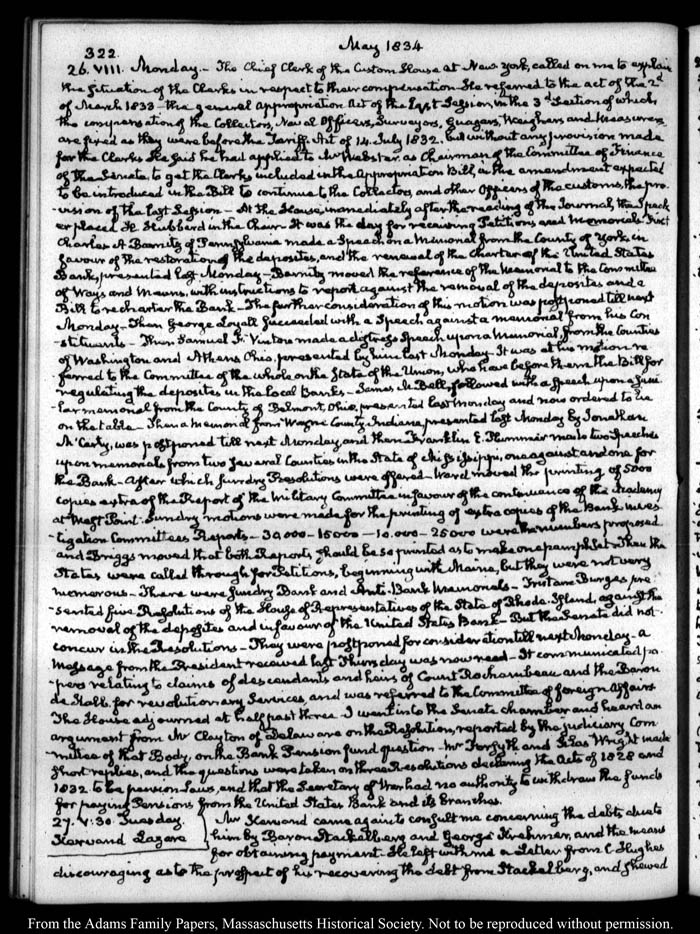 322
May 1834
26. VIII. Monday. – The Chief Clerk of the Custom House at New York, called on me to explain
the situation of the Clerks in respect to their compensation – He referred to the act of the 2d
of March 1833 – the general Appropriation Act of the last Session, in the 3d Section of which,
the compensation of the Collectors, Naval Officers, Surveyors, Guagers, Weighers and Measurers
are fixed as they were before the Tariff Act of 14 July 1832. but without any provision made
for the Clerks. He said he had applied to Mr Webster, as Chairman of the Committee of Finance
of the Senate, to get the Clerks included in the Appropriation Bill, in the amendment expected
to be introduced in the Bill to continue to the Collectors, and other Officers of the customs, the pro-
-vision of the last Session – At the House, immediately after the reading of the Journal, the Speak-
er placed H. Hubbard in the Chair – It was the day for receiving Petitions and Memorials. First
Charles A Barnitz of Pennsylvania made a Speech on a Memorial from the County of York, in
favour of the restoration of the deposites, and the renewal of the charter of the United States
Bank, presented last Monday – Barnitz moved the reference of the Memorial to the Committee
of Ways and Means, with instructions to report against the removal of the deposites and a
Bill to recharter the Bank – The further consideration of this motion was postponed till next
Monday – Then George Loyall succeeded with a Speech against a memorial from his Con
-stituents – Then Samuel F. Vinton made a distress Speech upon a Memorial, from the Counties
of Washington and Athens Ohio, presented by him last Monday. It was at his motion re
-ferred to the Committee of the whole on the State of the Union, who have before them the Bill for
regulating the deposites in the local Banks – James M. Bell, followed with a Speech upon a simi
-lar memorial from the County of Belmont, Ohio, presented last Monday and now ordered to lie
on the table – Then a Memorial from Wayne County, Indiana, presented last Monday by Jonathan
McCarty, was postponed till next Monday, and then Franklin E. Plummer made two Speeches
upon memorials from two several Counties in the State of Mississippi, one against and one for
the Bank – After which sundry Resolutions were offered – Ward moved the printing of 5000
copies extra of the Report of the Military Committee in favour of the continuance of the Academy
at West Point – Sundry motions were made for the printing of extra copies of the Bank inves-
-tigation Committees Reports – 30,000 – 15000 – 10.000 – 25000 were the numbers proposed
and Briggs moved that both Reports should be so printed as to make one pamphlet – Then the
States were called through for Petitions, beginning with Maine, but they were not very
numerous – There were sundry Bank and Anti-Bank Memorials – Tristam Burges pre
-sented five Resolutions of the House of Representatives of the State of Rhode-Island, against the
removal of the deposites and in favour of the United States Bank – But the Senate did not
concur in the Resolutions – They were postponed for consideration till next Monday – a
Message from the President received last Thursday was now read – It communicated pa-
-pers relating to claims of descendants and heirs of Count Rochambeau and the Baron
de Kalb, for revolutionary services, and was referred to the Committee of foreign Affairs
The House adjourned at half past three – I went into the Senate chamber and heard an
argument from Mr Clayton of Delaware on the Resolution, reported by the judiciary Com
-mittee of that Body, on the Bank Pension fund question – Mr Forsyth and Silas Wright made
short replies, and the questions were taken on three Resolutions declaring the Acts of 1828 and
1832 to be pension Laws, and that the Secretary of War had no authority to withdraw the funds
for paying Pensions from the United States Bank and its branches.
27. V: 30. Tuesday.
Kerwand Lazare
Mr Kerwand came again to consult me concerning the debts due to
him by Baron Stackelberg and George Krehmer, and the means
for obtaining payment. He left with me a Letter from C. Hughes
discouraging as to the prospect of his recovering the debt from Stackelberg, and shewed
From the Adams Family Papers, Massachusetts Historical Society. Not to be reproduced without permission.